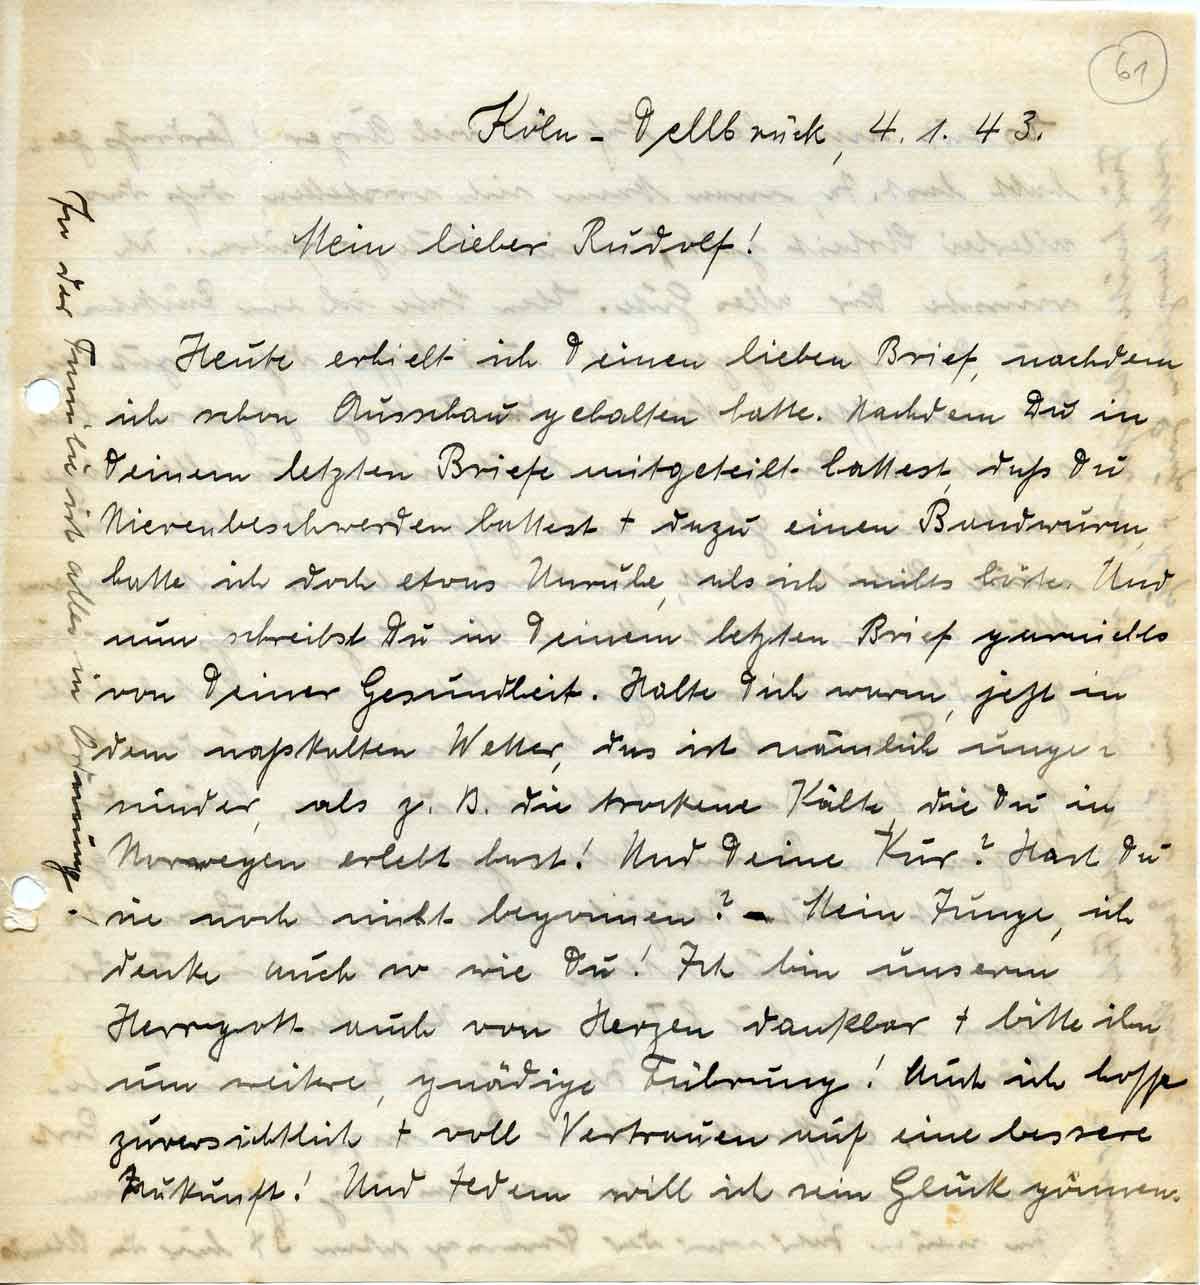 61
Köln - Dellbrück, 4. 1. 43.
Mein lieber Rudolf!
Heute erhielt ich Deinen lieben Brief, nachdem
ich schon Ausschau gehalten hatte. Nachdem Du in
Deinem letzten Briefe mitgeteilt hattest, daß Du
Nierenbeschwerden hattest + dazu einen Bandwurm,
hatte ich doch etwas Unruhe, als ich nichts hörte. Und
nun schreibst Du in Deinem letzten Brief garnichts
von Deiner Gesundheit. Halte Dich warm, jetzt in
dem naßkalten Wetter, das ist nämlich unge-
sünder, als z. B. die trockene Kälte, die Du in
Norwegen erlebt hast! Und Deine Kur? Hast Du
sie noch nicht begonnen? - Mein Junge, ich
denke auch so wie Du! Ich bin unserm
Herrgott auch von Herzen dankbar + bitte ihn
um weitere, gnädige Führung! Auch ich hoffe
zuversichtlich + voll Vertrauen auf eine bessere
Zukunft! Und Jedem will ich sein Glück gönnen.
In der Familie ist alles in Ordnung!